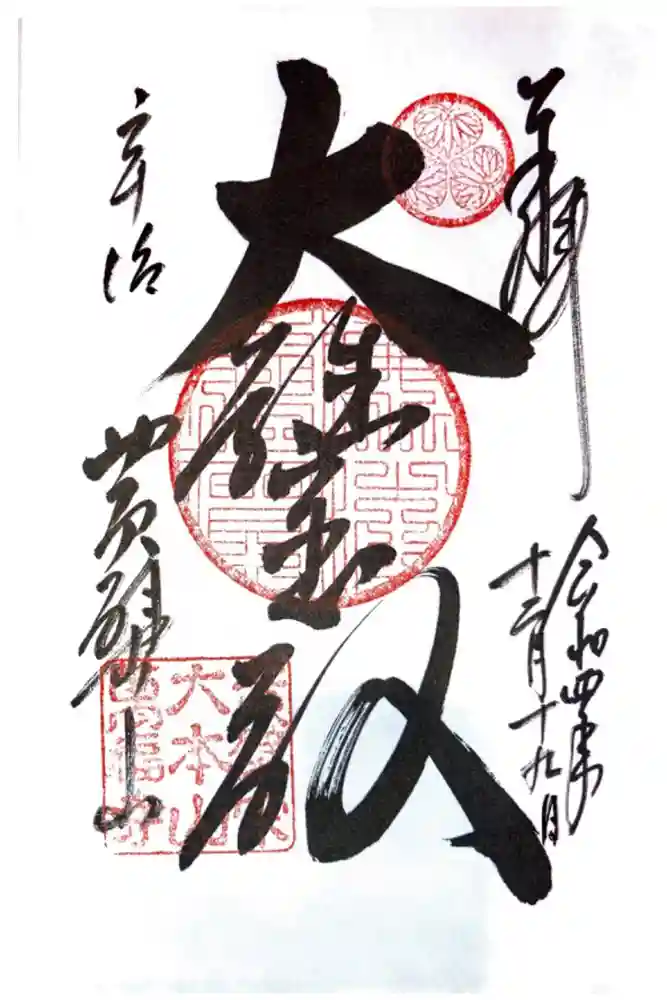 奉拝
令和四年
十二月十九日
大雄宝殿
宇治
黄檗山
黄檗宗
大本山
萬福寺